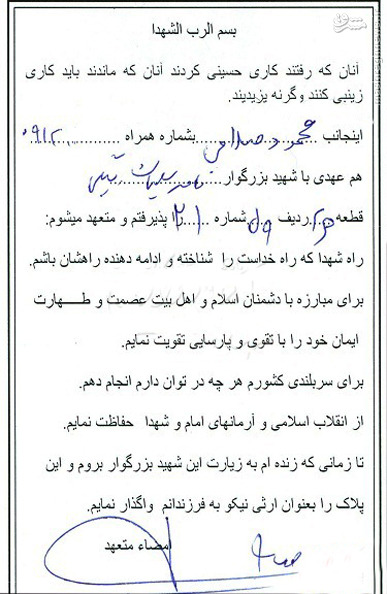 بسم الرب الشهدا
آنان که رفتند کاری حسینی کردند آنان که ماندند باید کاری
زینبی کنند وگرنه یزیدیند.
اینجانب ....محمود صلاحی....بشماره همراه ....۰۹۱۲....
هم عهدی با شهید بزرگوار....
قطعه....ردیف....شماره ....را پذیرفتم و متعهد میشوم:
راه شهدا که راه خداست را شناخته و ادامه دهنده راهشان باشم.
برای مبارزه با دشمنان اسلام و اهل بیت عصمت و طهارت
ایمان خود را با تقوی و پارسایی تقویت نمایم.
برای سربلندی کشورم هر چه در توان دارم انجام دهم.
از انقلاب اسلامی و آرمانهای امام و شهدا حفاظت نمایم.
تا زمانی که زنده ام به زیارت این شهید بزرگوار بروم و این
پلاک را بعنوان ارثی نیکو به فرزندانم واگذار نمایم.
امضاء متعهد